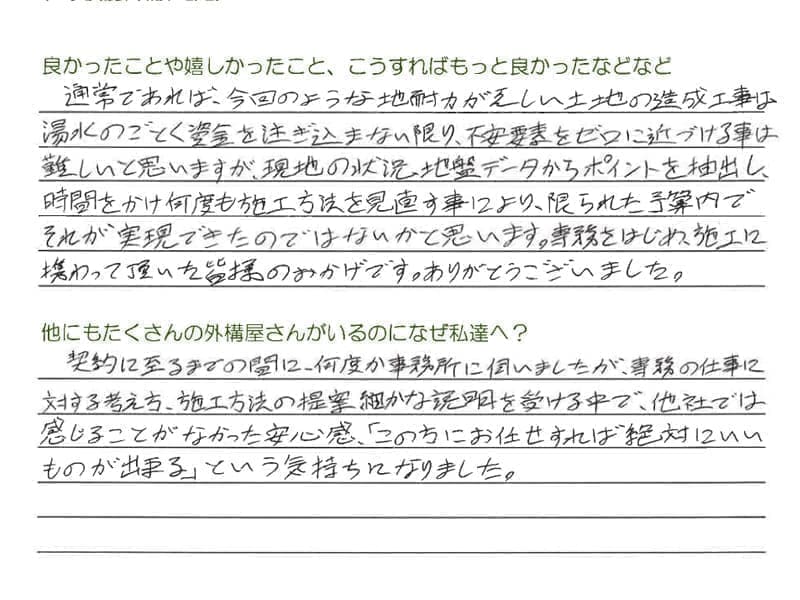 良かったことや嬉しかったこと、こうすればもっと良かったなどなど
通常であれば、今回のような地耐力が乏しい土地の造成工事は
湯水のごとく資金を注ぎ込まない限り、不安要素をゼロに近づける事は
難しいと思いますが、現地の状況、地盤データからポイントを抽出し、
時間をかけ何度も施工方法を見直す事により、限られた予算内で
それが実現できたのではないかと思います。専務をはじめ、施工に
携わって頂いた皆様のおかげです。ありがとうございました。
他にもたくさんの外構屋さんがいるのになぜ私達へ？
契約に至るまでの間に、何度か事務所に伺いましたが、専務の仕事に
対する考え方、施工方法の提案、細かな説明を受ける中で、他社では
感じることがなかった安心感、「この方にお任せすれば絶対にいい
ものが出来る」という気持ちになりました。